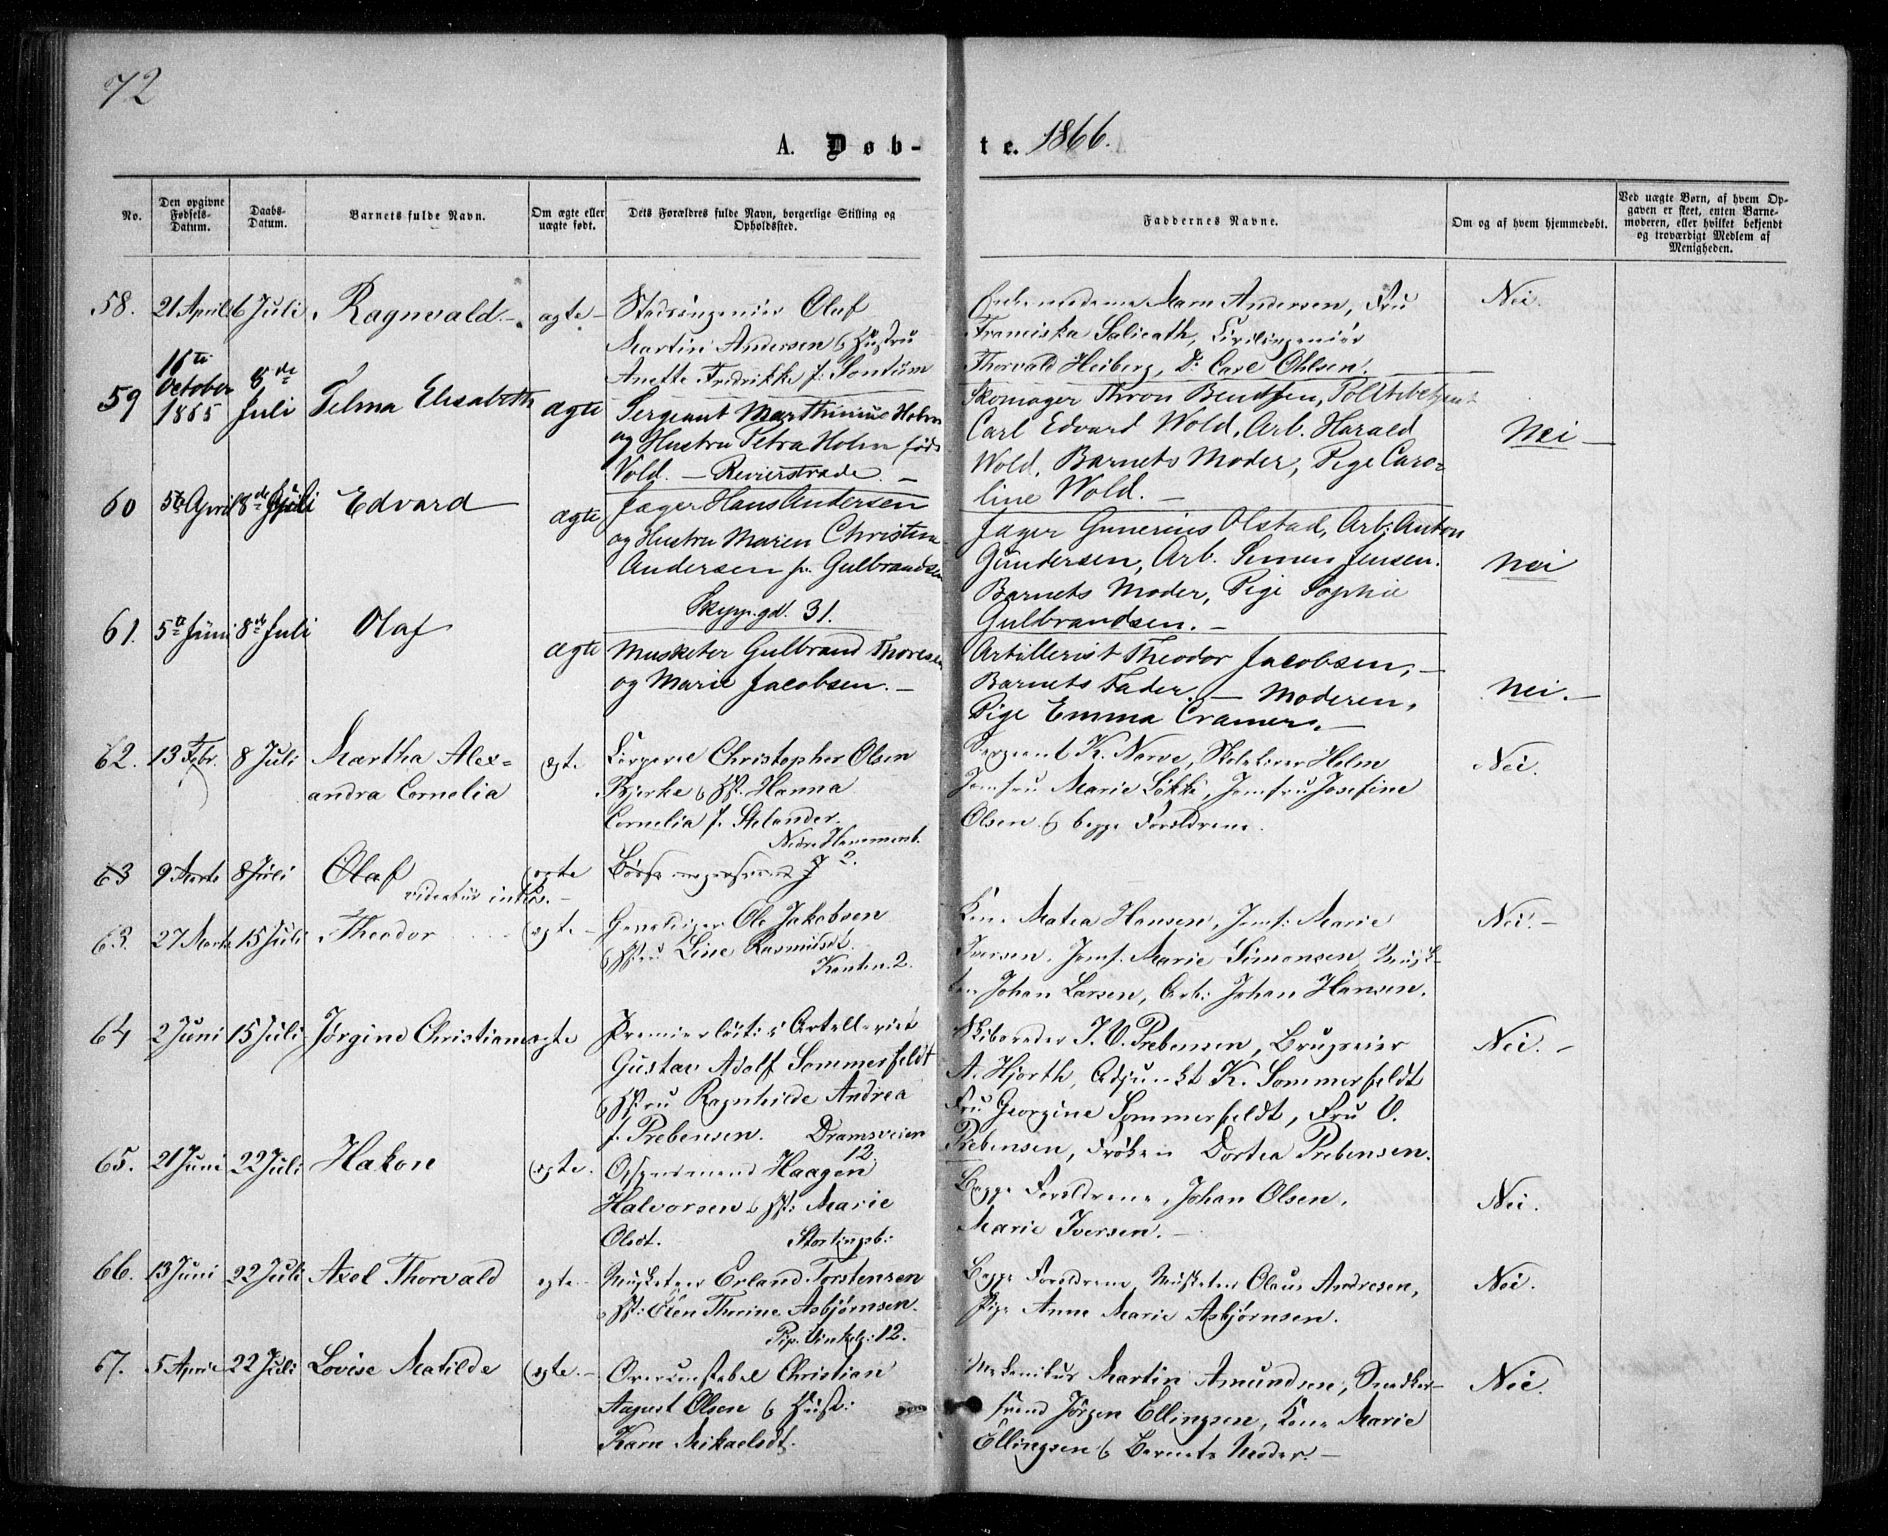 72
A. Døb-
te. 1866.
No.
Den opgivne Fødsels-Datum.
Daabs-Datum.
Barnets fulde Navn.
Om ægte eller uægte født.
Dets Forældres fulde Navn, borgerlige Stilling og Opholdssted.
Faddernes Navne.
Om og af hvem hjemmedøbt.
Ved uægte Børn, af hvem Opgaven er skeet, enten Barnemoderen, eller hvilket bekjendt og troværdigt Medlem af Menigheden.
58. 21 April 6 Juli Ragnvald. ægte
Stadsingeniør Olaf
Martin Andersen & Hustru
Anette Fredrikke f: Sontum
Maren Andersen, Fru
Franciska Salicath, Civilingeniør
Thorvald Heiberg, Dr. Carl Ohlsen.
Nei.
59 16te October 1865 8de Juli Telma Elisabeth ægte
Sergeant Marthinius Holm
og Hustru Petra Holm født
Vold. — Revierstrade. —
Skomager Thron Bendsen, Politibetjent
Carl Edvard Wold, Arb. Harald
Wold, Barnets Moder, Pige Caro-
line Wold. —
Nei —
60 5te April 8de Juli Edvard ægte
Jæger Hans Andersen
og Hustru Maren Christine
Andersen f. Gulbrandsen
Skipp.gd. 31.
Jæger Gunerius Olstad, Arb: Anton
Gundersen, Arb. Simen Jensen.
Barnets Moder, Pige Sophie
Gulbrandsen. —
Nei
61. 5te Juni 8de Juli Olaf ægte
Musketer Gulbrand Thoresen
og Marie Jacobsen. —
Artillerist Theodor Jacobsen, —
Barnets Fader. — Moderen,
Pige Emma Cramer. —
Nei. —
62. 13 Febr. 8 Juli Martha Alex=
andra Cornelia ægte
Christopher Olsen
Bjerke & H: Hanna
Cornelia f. Stelander.
Nedre Hammersb.
Sergeant K. Narve, Holm
Jomfru Marie Løkke, Jomfru Josefine
Olsen & begge Forældrene.
Nei.
63 9 Marts 8 Juli Olaf ægte
videatur infra. —
63. 27 Marts 15 Juli Theodor ægte —
Ole Jakobsen
& H:ru Line Rasmusdt.
Kanten 2.
Kone Matea Hansen, Jomf: Marie
Iversen, Jomf. Marie Simonsen,
Johan Larsen, Arb: Johan Hansen.
Nei. —
64 2 Juni 15 Juli Jørgine Christiane ægte
Premierløit: i Artilleriet
Gustav Adolf Sommerfeldt
& H:ru Ragnhilde Andrea
f. Prebensen. Dramsveien
12.
Skibsreder J. V. Prebensen, Brugseier
A. Hjorth, Adjunkt K. Sommerfeldt
Fru Georgine Sommerfeldt, Fru V.
Prebensen, Frøken Dortea Prebensen.
Nei. —
65. 21 Juni 22 Juli Hakon ægte.
Opsynsmand Haagen
Halvorsen & H: Marie
Olsdt. Stortingsb:
Begge Forældrene, Johan Olsen,
Marie Iversen. —
Nei.
66. 13 Juni 22 Juli Axel Thorvald ægte —
Musketeer Erland Torstensen
& H: Elen Thrine Asbjørnsen.
Pip. Vinkelg: 12.
Begge Forældrene, Musketeer Olaus Andresen,
Pige Anne Marie Asbjørnsen.
Nei.
67. 5 April 22 Juli Lovise Matilde ægte. —
Overconstabel Christian
August Olsen & Hust:
Karn Mikaelsdt.
Mekanikus Martin Amundsen, Snedker-
svend Jørgen Ellingsen, Kone Marie
Ellingsen & Barnets Moder. —
Nei.